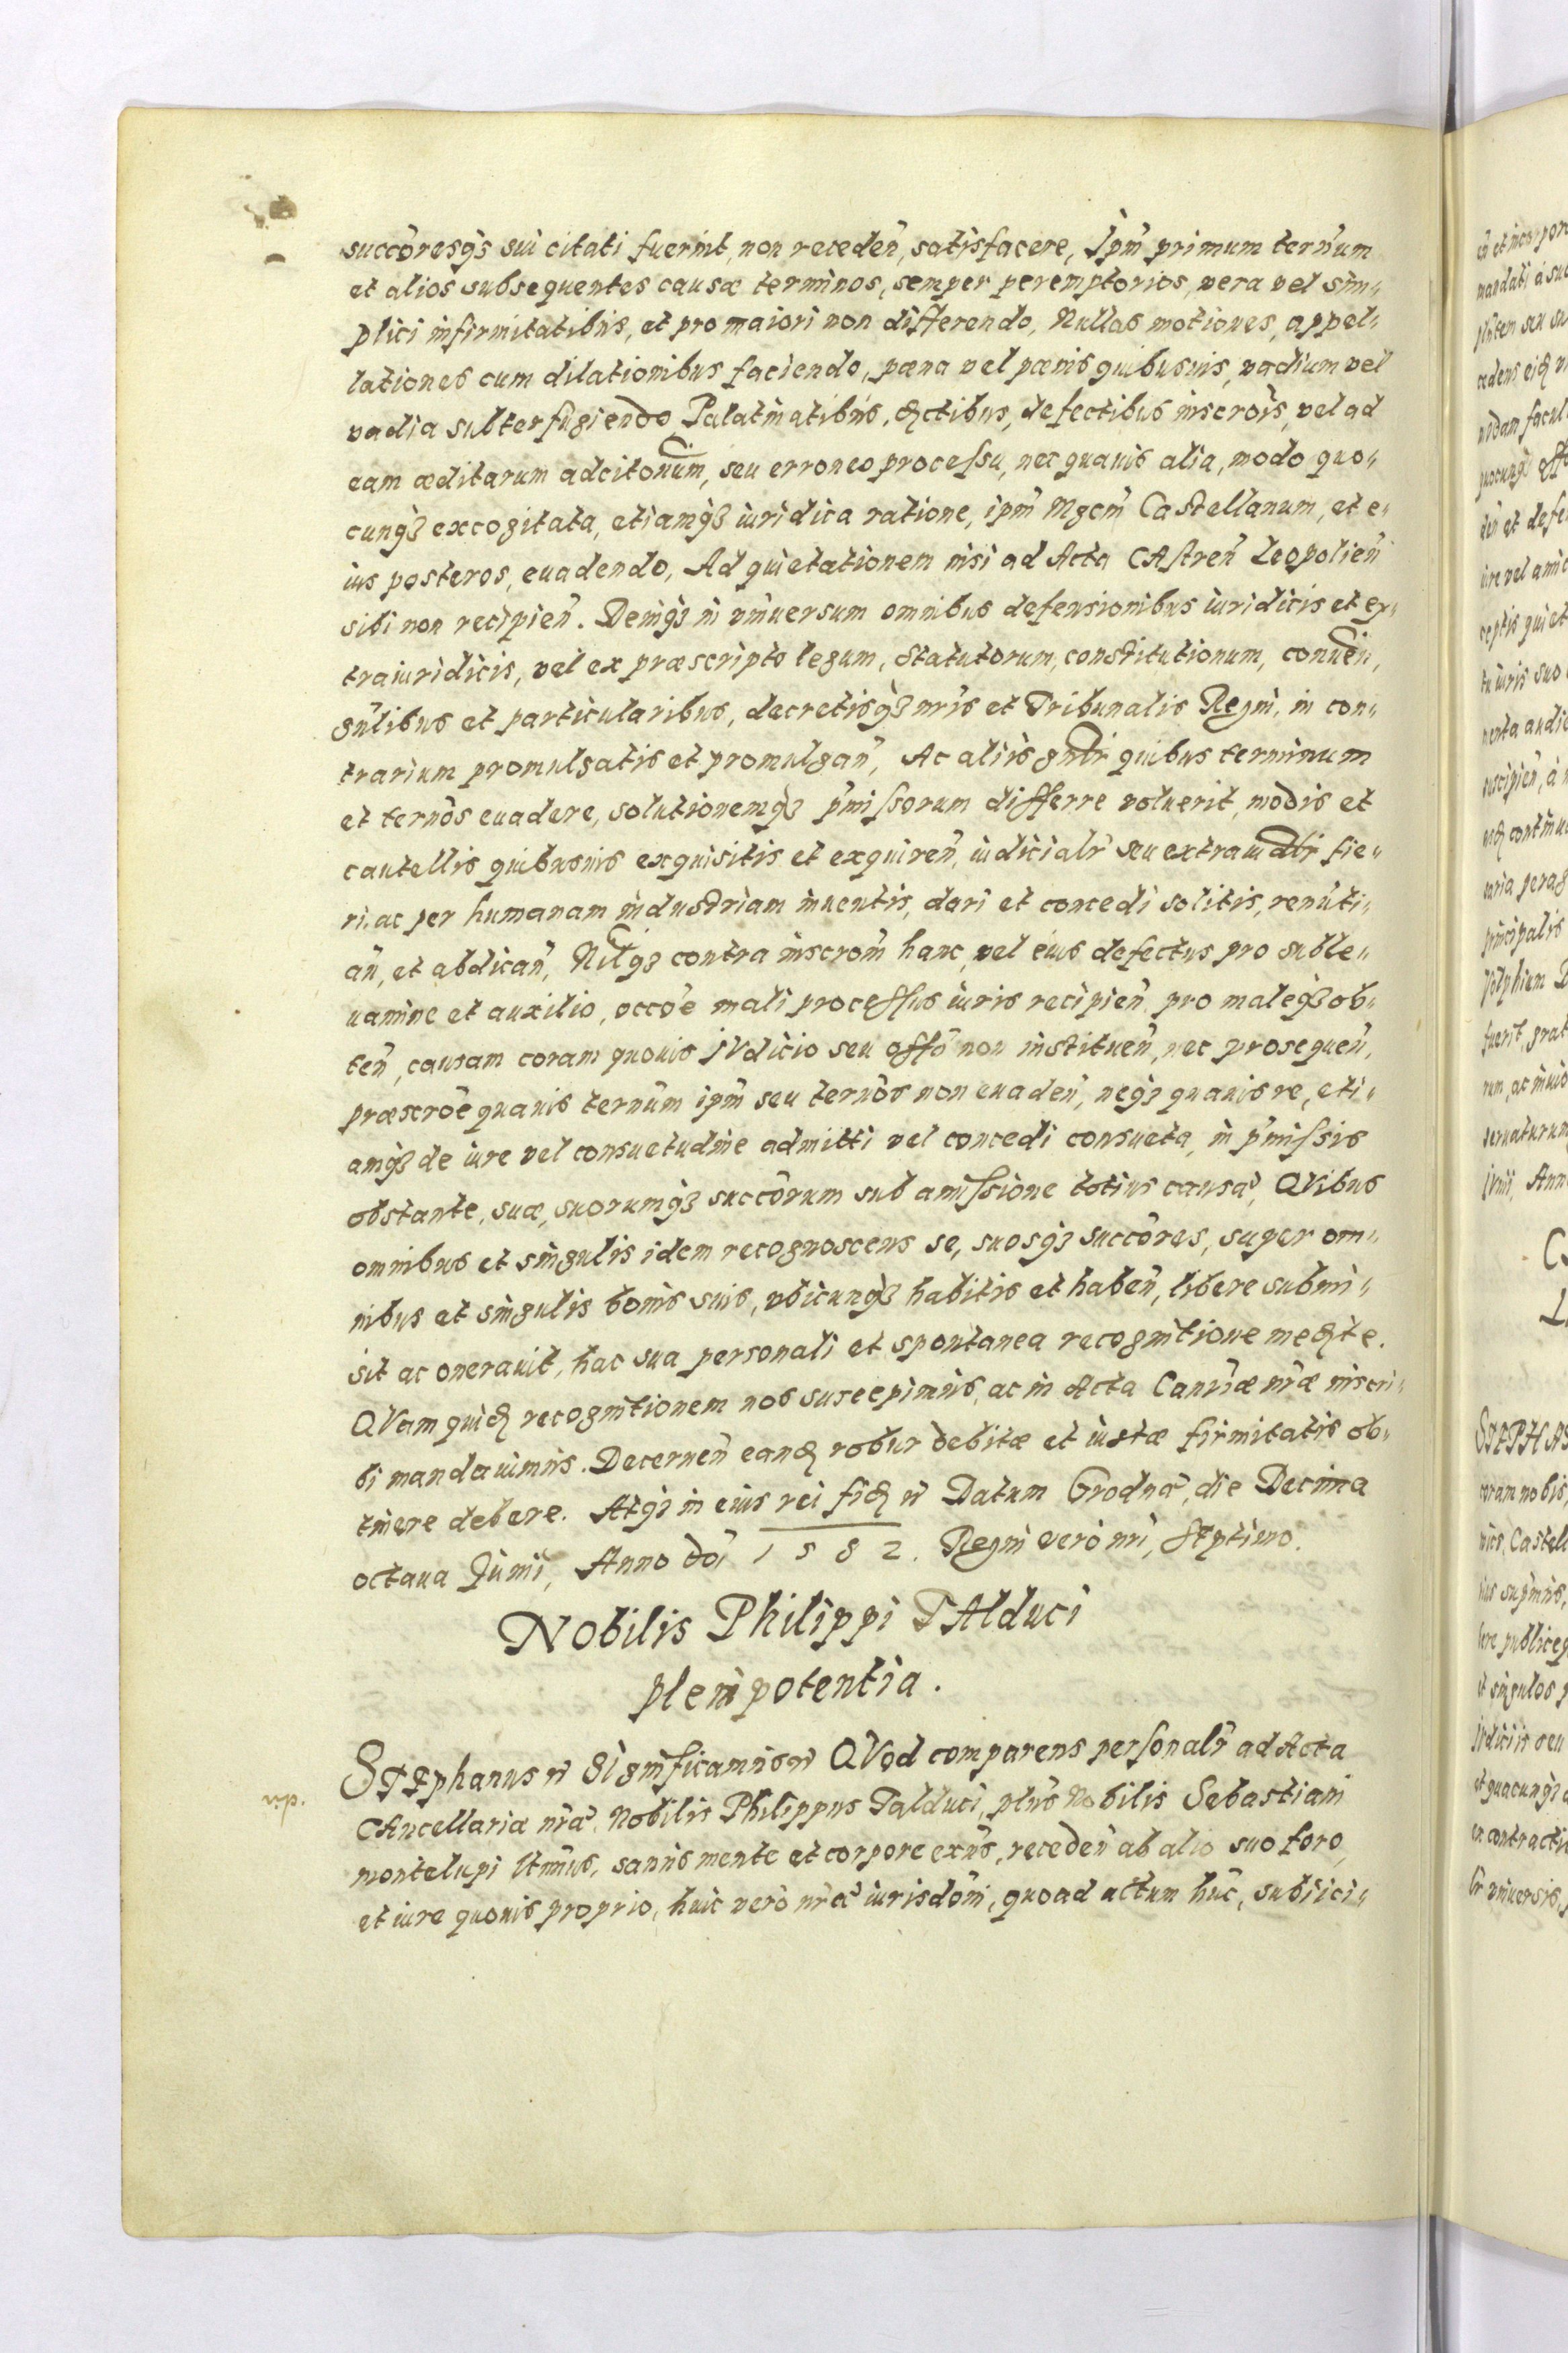 succoresq₃ sui citati fuerint, non receden, satisfacere, Ipm primum ternum
et alios subsequentes causæ terminos, semper peremptorios, vera vel sim„
plici infirmitatibus, et pro maiori non differendo, Nullas motiones, appel„
lationes cum dilationibus faciendo, pæna vel pænis quibusuis, vadium vel
vadia subterfugiendo, Palatinatibus, defectibus inscrois, vel ad
eam æditarum adcitonum, seu erroneo processu, nec quauis alia, modo quo„
cunq₃ excogitata, etiamq₃ iuridica ratione, ipm Mgcm Castellanum, et e„
ius posteros, euadendo, Ad quietationem nisi ad Acta CAstren Leopolien
sibi non recipien. Deniq₃ in vniuersum omnibus defensionibus iuridicis et ex„
traiuridicis, vel ex præscripto legum, statutorum, constitutionum, conuen,
gnlibus et particularibus, decretisq₃ nris et Tribunalis Regni, in con„
trarium promulgatis et promulgan, Ac aliis gnlr quibus terminum
et ternos euadere, solutionemq₃ pmissorum differre voluerit, modis et
cautellis quibusuis exquisitis et exquiren, iudicialr seu extraiudlr fie„
ri, ac per humanam industriam inuentis, dari et concedi solitis, renuti„
an, et abdican, Nilq₃ contra inscrom hanc, vel eius defectus pro suble„
uamine et auxilio, occoe mali processus iuris recipien, pro maleq₃ ob„
ten, causam coram quouis IVdicio seu offo non instituen, nec prosequen,
præscroe quauis ternum ipm seu ternos non euaden, neq₃ quauis re, eti„
amq₃ de iure vel consuetudine admitti vel concedi consueta, in pmissis
obstante, suæ, suorumq₃ succorum sub amissione totius causæ, QVibus
omnibus et singulis idem recognoscens se, suosq₃ succores, super om„
nibus et singulis bonis suis, vbicunq₃ habitis et haben, libere submi„
sit ac onerauit, hac sua personali et spontanea recognitione med te.
QVam quid recognitionem nos suscepimus, ac in Acta Canriæ nræ inscri„
bi mandauimus. Decernen eand robur debitæ et iustæ firmitatis ob„
tinere debere. Atq₃ in eius rei fid etc Datum Grodnæ, die Decima
octaua Iunii, Anno doi 1582. Regni vero nri, Septimo.
Nobilis Philippi TAlduci
plenipotentia.
STEphanus etc Significamus etc QVod comparens personalr ad Acta
CAncellariæ nræ, Nobilis Philippus Talduci, plns Nobilis Sebastiani
montelupi sanus mente et corpore exns, receden ab alio suo foro,
et iure quouis proprio, huic vero nræ iurisdoni, quoad actum hunc, subiici„